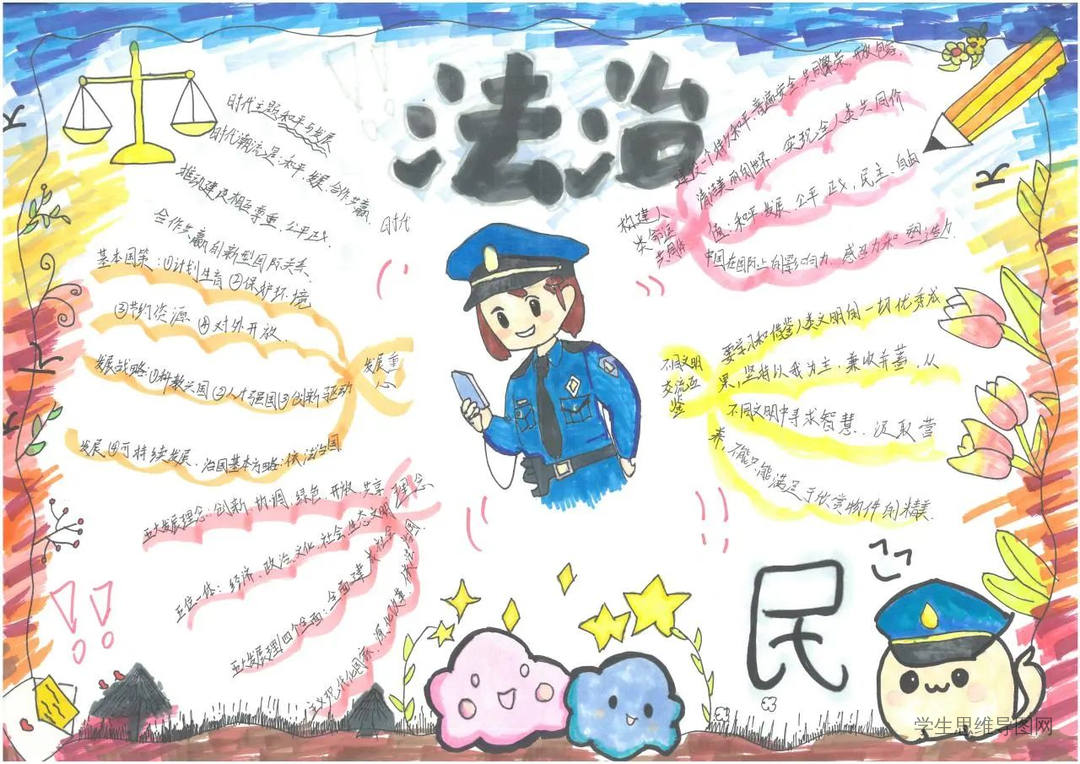 法治
时代主题:和平与发展
时代潮流是:和平,发展,合作共赢.
推动建设相互尊重,公平正义.
合作共赢的新型国际关系
时代
基本国策:①计划生育 ②保护环境
③节约资源 ④对外开放.
发展战略:①科教兴国②人才强国③创新驱动
发展④可持续发展.治国基本方略:依法治国
发展重
心
五大发展理念:创新 协调,绿色,开放 共享 理念
五位一体:经济、政治、文化、社会、生态文明
四个全面:全面建
构建人
类命运
共同体
建设一个持久和平、普遍安全、共同繁荣、开放包容、
清洁美丽的世界.实现全人类共同价
值:和平、发展、公平、正义,民主、自由
中国在国际上的影响力、感召力和塑造力
不同文明
交流互
鉴
要学习和借鉴人类文明的一切优秀成
果,坚持以我为主.兼收并蓄.从
不同文明中寻求智慧、汲取营
养,不能只能满足于欣赏物件的精美.
民
学生思维导图网